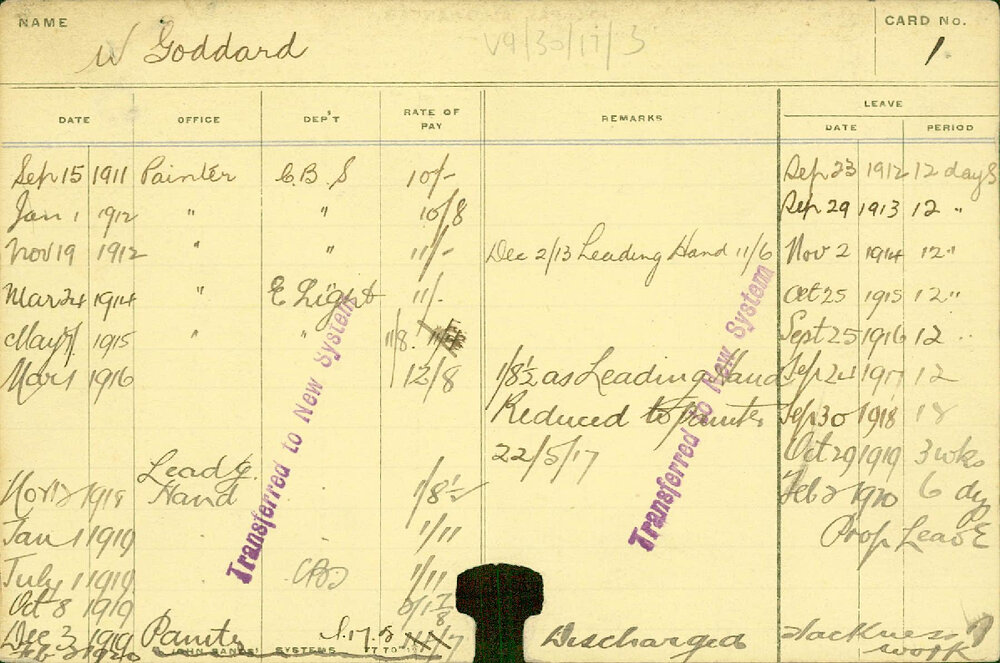 NAME W Goddard V9/30/17/3 CARD No. 1.
LEAVE
DATE OFFICE DEP'T RATE OF PAY REMARKS DATE PERIOD
Sep 15 1911 Painter C.B.S 10/- Sep 23 1912 12 days
Jan 1 1912 " " 10/8 Sep 29 1913 12 "
Nov 19 1912 " " 11/- Dec 2/13 Leading Hand 11/6 Nov 2 1914 12 "
Mar 24 1914 " E Light 11/- Oct 25 1915 12 "
May 1 1915 " " 11/8 Sept 25 1916 12 "
Mar 1 1916 12/8 1/8½ as Leading Hand Sep 24 1917 12
Reduced to painter Sep 30 1918 18
22/5/17 Oct 29 1919 3 wks
Leadg
Nov 2 1918 Hand 1/8½ Feb 2 1920 6 dy
Jan 1 1919 1/11 Prop Leave
July 1 1919 CBS 1/11
Oct 8 1919
Dec 3 1919 Painter Discharged slackness
1920 JOHN SANDS SYSTEMS work
Transferred to New System
Transferred to New System